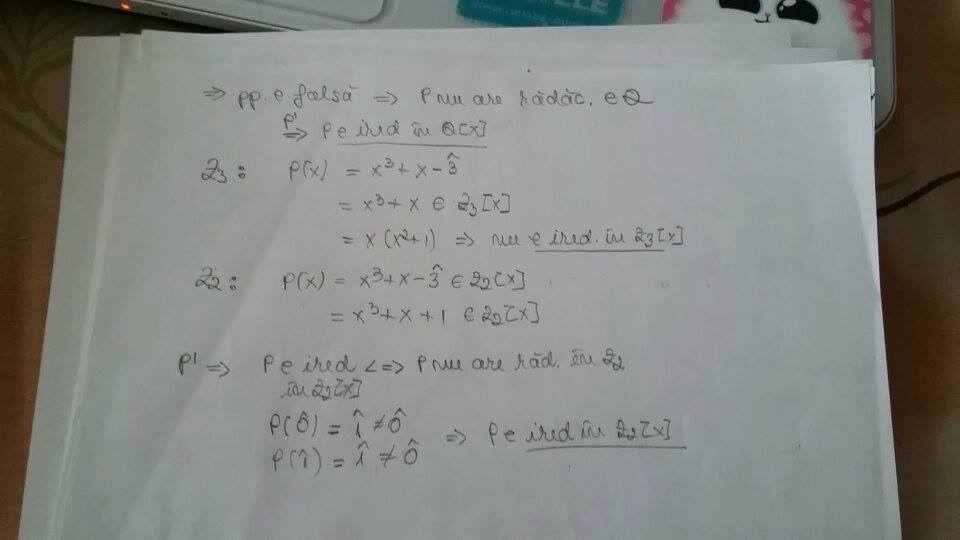 ⇒ pp. e falsă ⇒ P nu are rădăc. ∈ Q
P' ⇒ P e ired în Q[X]
Z₃: P(x) = x³ + x - 3̂
= x³ + x ∈ Z₃[x]
= x (x² + 1) ⇒ nu e ired. în Z₃[x]
Z₂: P(x) = x³ + x - 3̂ ∈ Z₂[x]
= x³ + x + 1 ∈ Z₂[x]
P' ⇒ P e ired <=> P nu are răd. în Z₂
în Z₂[x]
P(0̂) = 1̂ ≠ 0̂
⇒ P e ired în Z₂[x]
P(1̂) = 1̂ ≠ 0̂